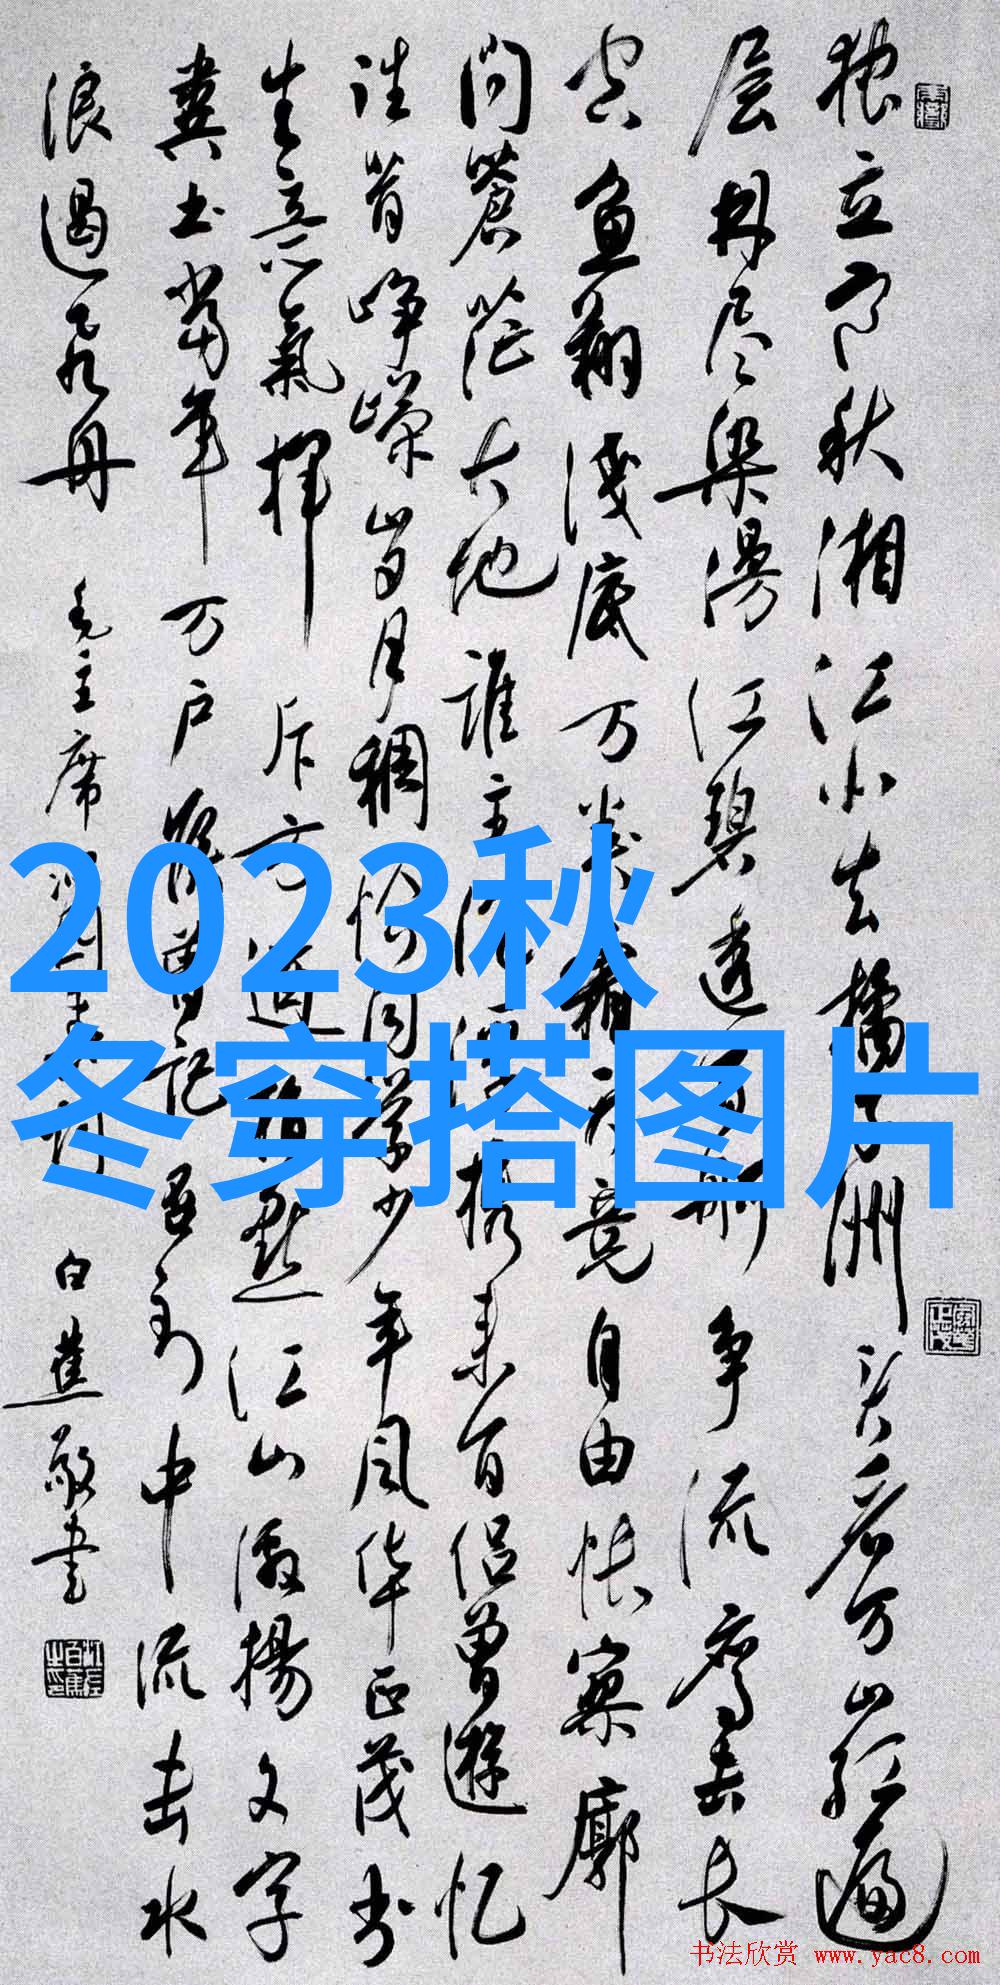 独立寒秋湘江北去橘子洲头看万山红遍
层林尽染漫江碧透百舸争流鹰击长
空鱼翔淺底万类霜天竞自由怅寥廓
问蒼茫大地誰主沉浮携来百侣曾遊忆
往昔峥嵘岁月稠恰同学少年风华正茂书
生意氣挥斥方遒指点江山激揚文字
粪土当年万户侯曾记否到中流击水
浪遏飞舟 毛主席 白蕉敬书
2023秋
冬穿搭图片
书法欣赏 www.yac8.com